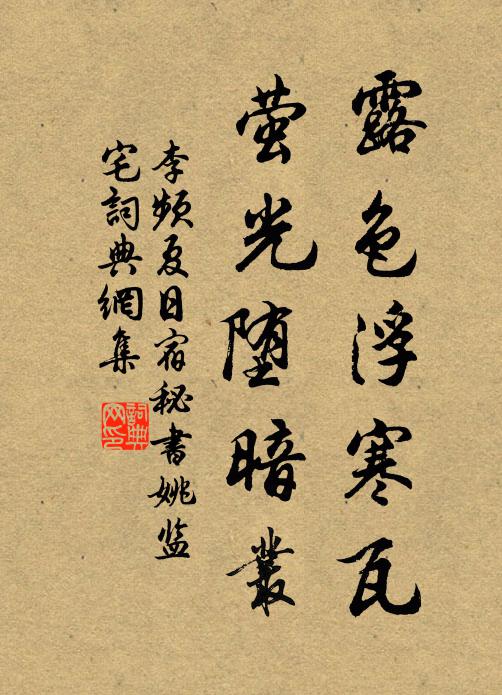 露色浮寒瓦
萤光堕暗叢
李频夏日宿秘書姚监
宅詞典網集
詞典
网印